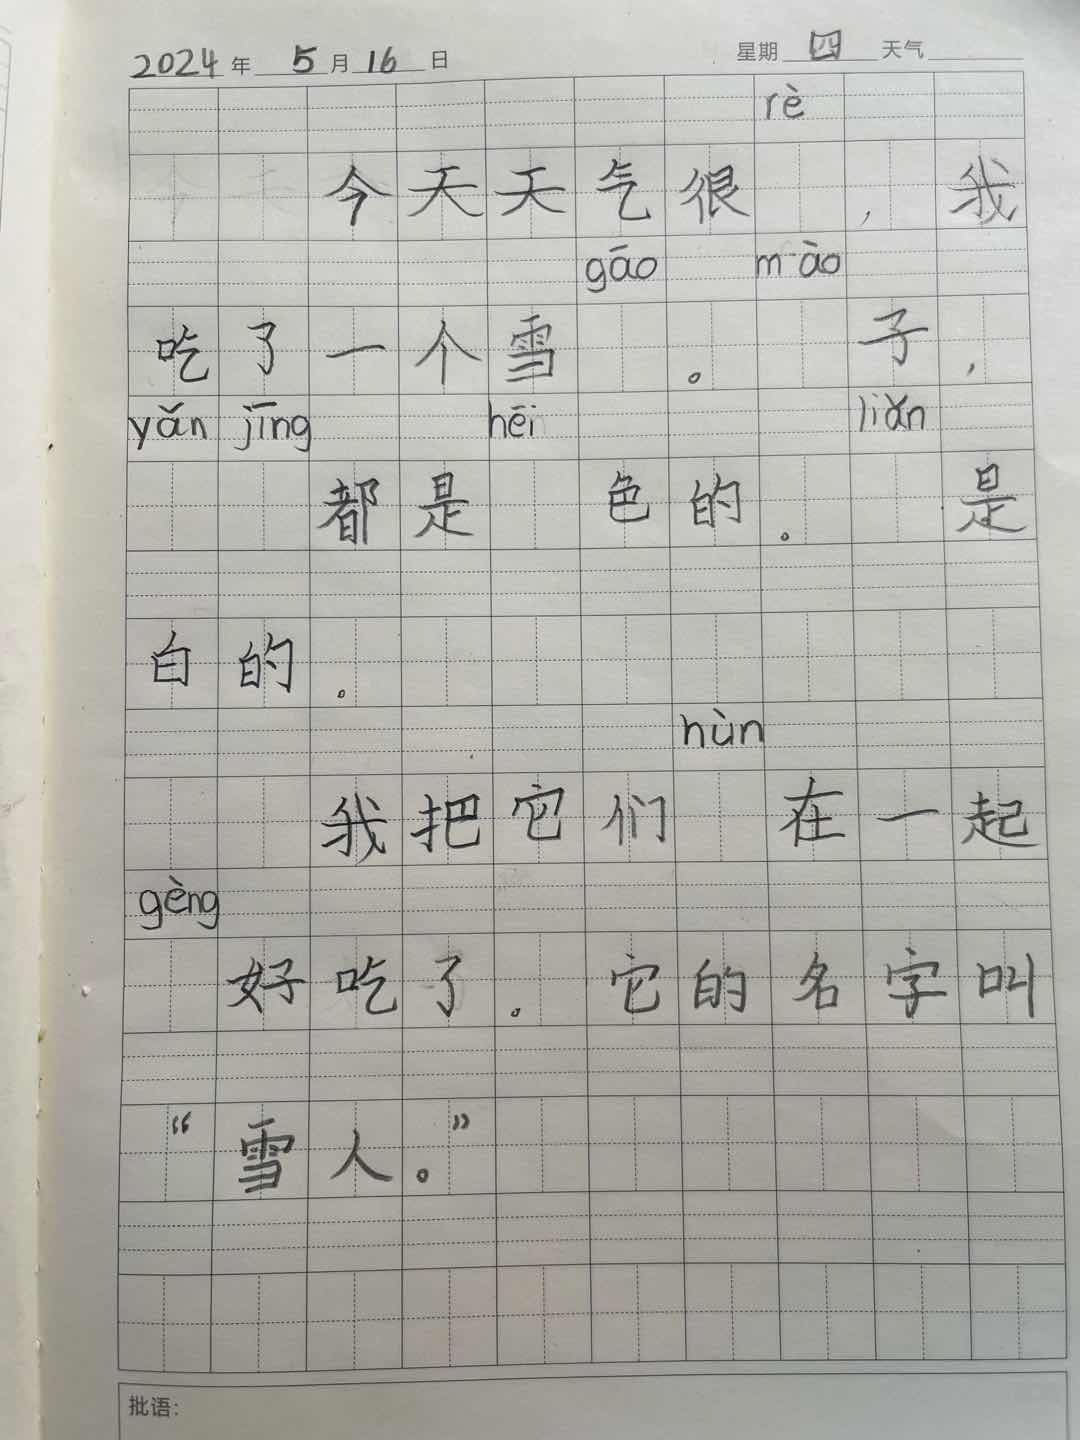 2024年 5月16日 星期 四 天气
rè
今天天气很 ，我
gāo mào
吃了一个雪 。 子，
yǎn jīng hēi liǎn
都是 色的。 是
白的。
hùn
我把它们 在一起
gèng
好吃了。它的名字叫
“雪人。”
批语：